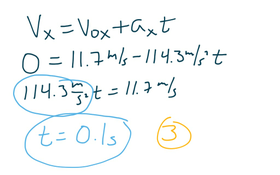 Vₓ = V₀ₓ + aₓt
0 = 11.7 m/s - 114.3 m/s² t
114.3 m/s² t = 11.7 m/s
t = 0.1s 3